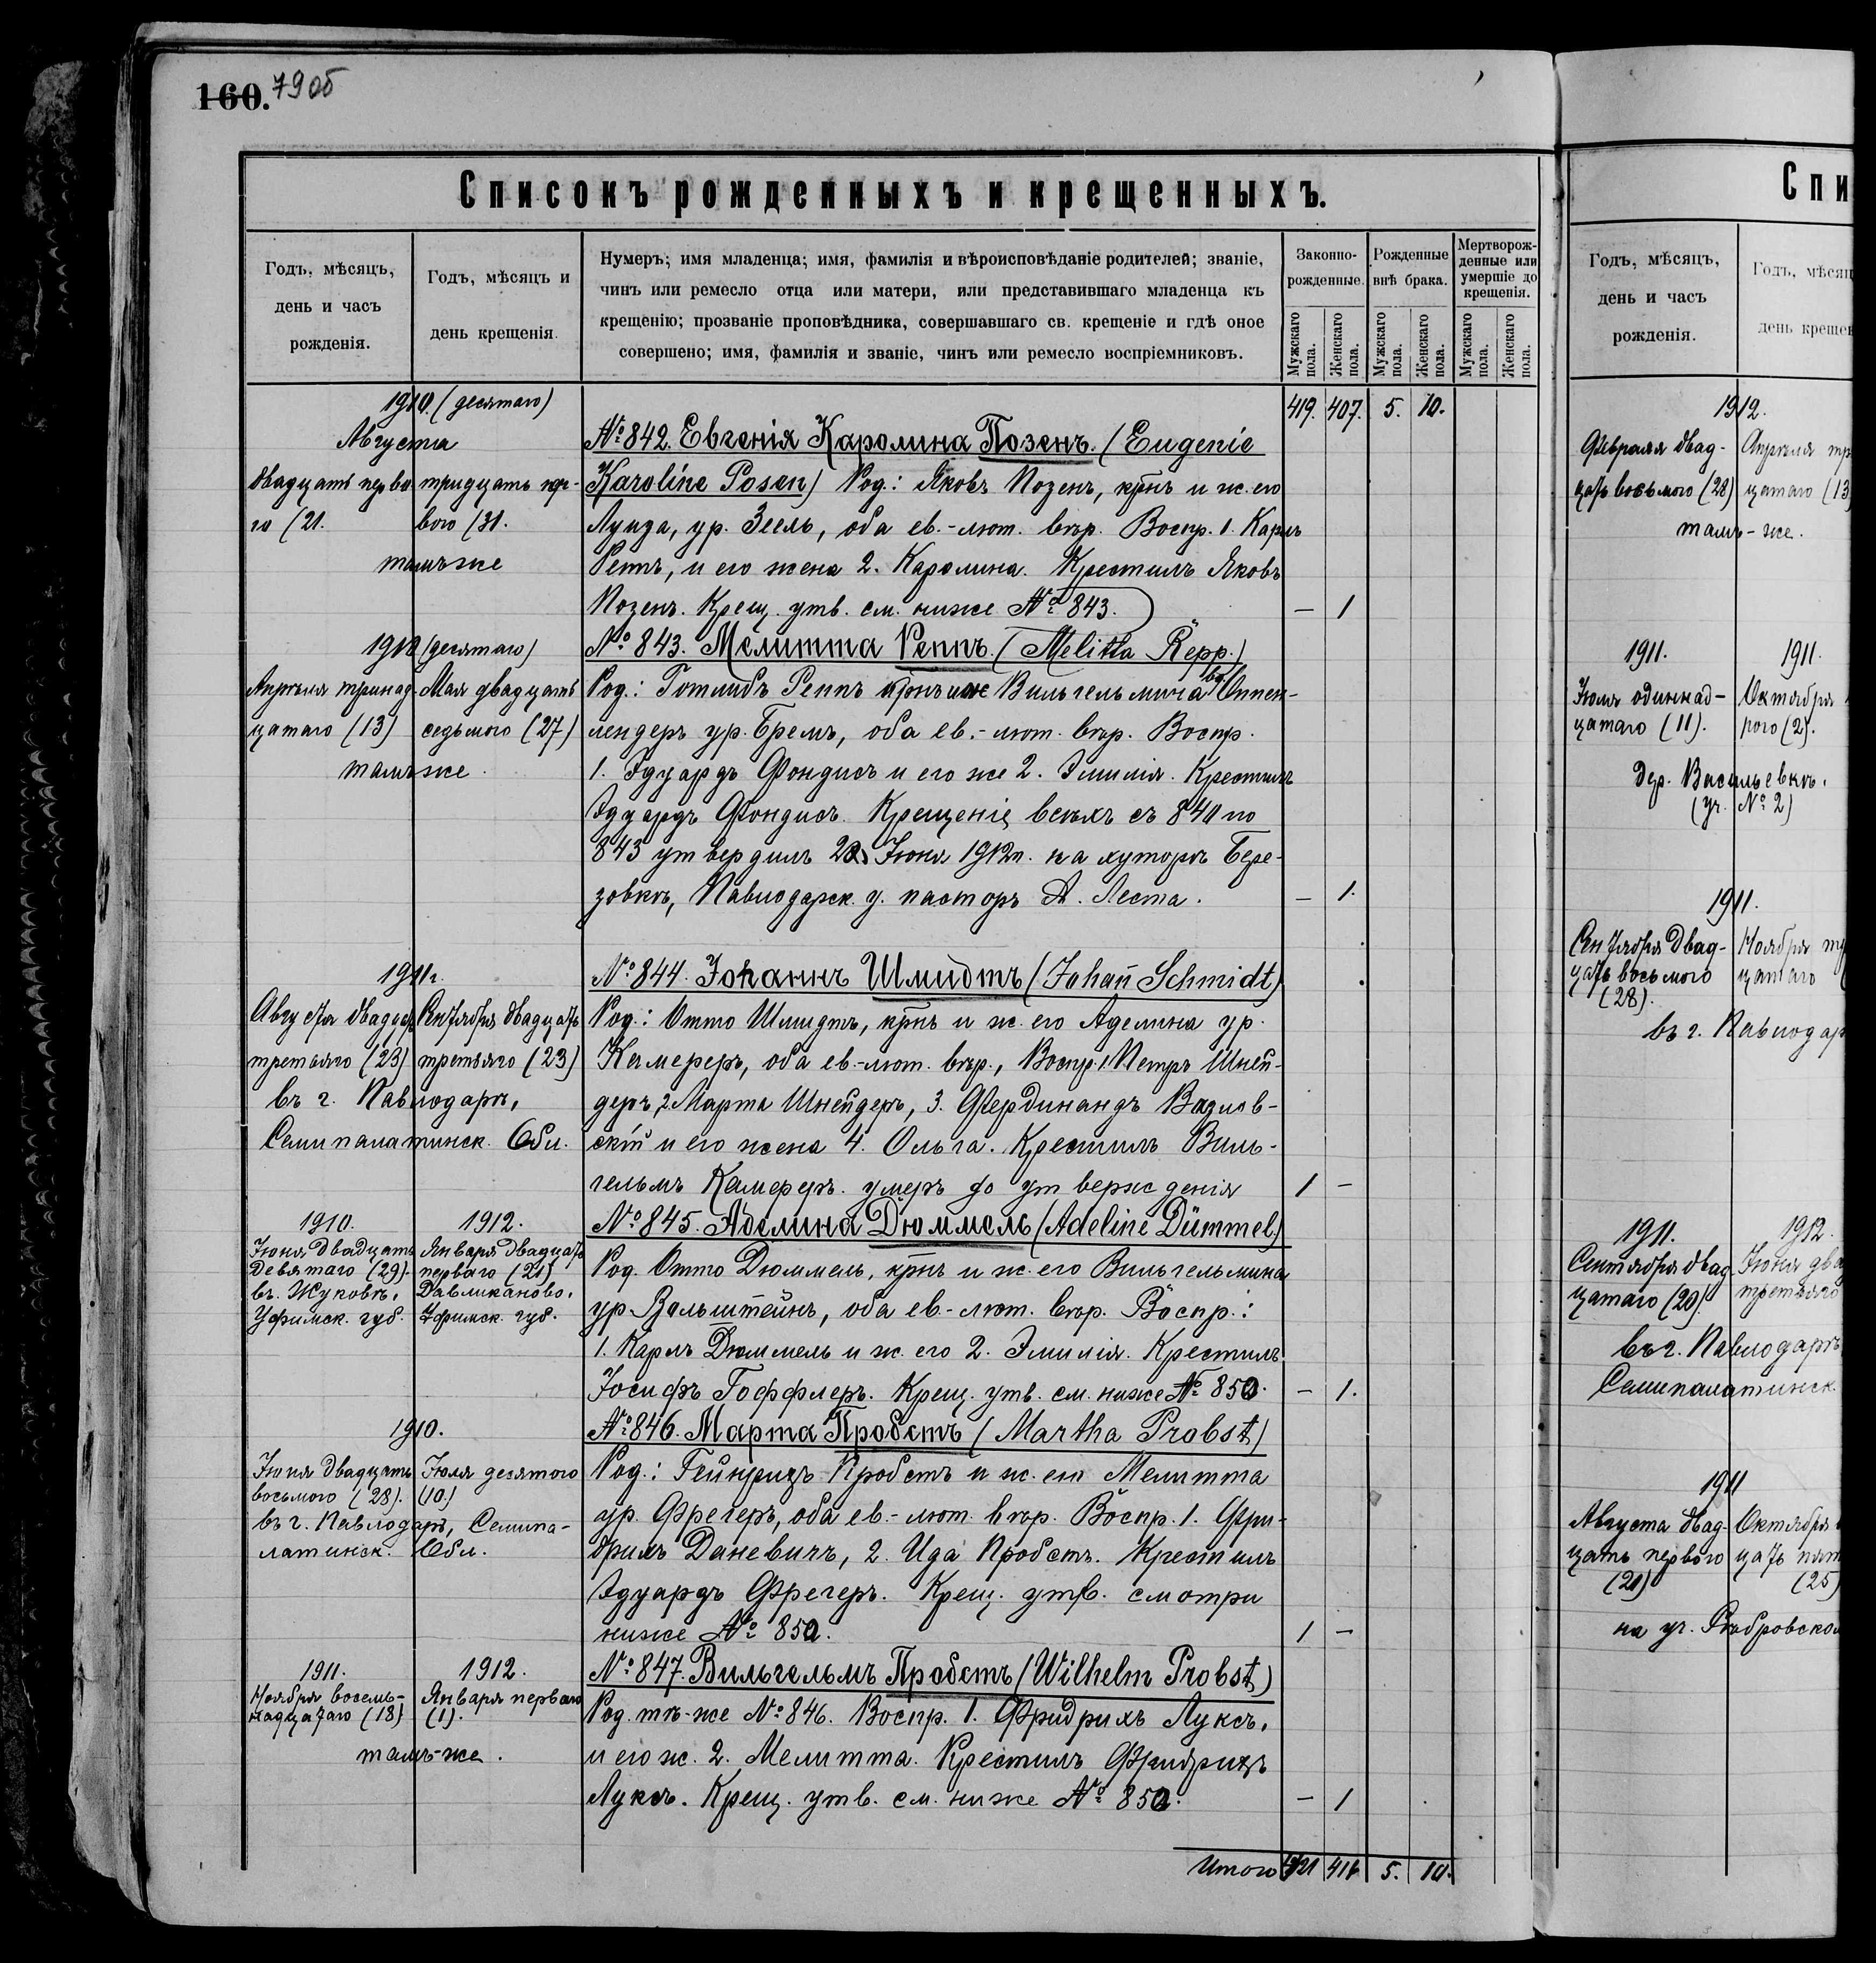 160. 79об
Списокъ рожденныхъ и крещенныхъ.
Годъ, мѣсяцъ,
день и часъ
рожденія.
Годъ, мѣсяцъ и
день крещенія.
Нумеръ; имя младенца; имя, фамилія и вѣроисповѣданіе родителей; званіе,
чинъ или ремесло отца или матери, или представившаго младенца къ
крещенію; прозваніе проповѣдника, совершавшаго св. крещеніе и гдѣ оное
совершено; имя, фамилія и званіе, чинъ или ремесло воспріемниковъ.
Законно-
рожденные.
Рожденные
внѣ брака.
Мертворож-
денные или
умершіе до
крещенія.
Мужскаго пола.
Женскаго пола.
Мужскаго пола.
Женскаго пола.
Мужскаго пола.
Женскаго пола.
419. 407. 5. 10.
1910. (десятаго)
Августа
двадцать перва-
го (21.
тридцать пер-
вого (31.
тамъ же
№ 842. Евгенія Каролина Позенъ. (Eugenie
Karoline Posen) Род.: Яковъ Позенъ, крнъ и ж. его
Луиза, ур. Зеель, оба ев.-лют. вѣр. Воспр. 1. Карлъ
Реппъ, и его жена 2. Каролина. Крестилъ Яковъ
Позенъ. Крещ. утв. см. ниже № 843.
— 1
1910 (десятаго)
Апрѣля тринад-
цатаго (13)
Мая двадцать
седьмого (27)
тамъ же.
№ 843. Мелитта Реппъ. (Melitta Repp.)
Род.: Готлибъ Реппъ крнъ и же Вильгельмина Оппен-
лендеръ ур. Бремъ, оба ев.-лют. вѣр. Воспр.
1. Эдуардъ Фондисъ и его же 2. Эмилія. Крестилъ
Эдуардъ Фондисъ. Крещеніе всѣхъ съ 840 по
843 утвердилъ Іюня 1912г. на хуторѣ Бере-
зовкѣ, Павлодарск. у. пасторъ А. Леста.
— 1.
1911г.
Августа двадцать
третьяго (23)
Сентября двадцать
третьяго (23)
въ г. Павлодарѣ,
Семипалатинск. Обл.
№ 844. Іоhаннъ Шмидтъ (Johañ Schmidt)
Род.: Отто Шмидтъ, крнъ и ж. его Аделина ур.
Камереръ, оба ев.-лют. вѣр., Воспр. 1. Петръ Шней-
деръ, 2. Марта Шнейдеръ, 3. Фердинандъ Вазлов-
скій и его жена 4. Ольга. Крестилъ Виль-
гельмъ Камереръ. умеръ до утвержденія
1 —
1910.
Іюня двадцать
девятаго (29).
въ Жуковѣ,
Уфимск. губ.
1912.
Января двадцать
перваго (21)
Давликаново,
Уфимск. губ.
№ 845. Аделина Дюммель (Adeline Dümmel)
Род. Отто Дюммель, крнъ и ж. его Вильгельмина
ур. Вальштейнъ, оба ев.-лют. вѣр. Воспр.:
1. Карлъ Дюммель и ж. его 2. Эмилія. Крестилъ
Іосифъ Гоффлеръ. Крещ. утв. см. ниже № 850.
— 1.
1910.
Іюня двадцать
восьмого (28).
Іюля десятого
(10.)
въ г. Павлодарѣ, Семипа-
латинск. Обл.
№ 846. Марта Пробстъ (Martha Probst)
Род.: Гейнрихъ Пробстъ и ж. его Мелитта
ур. Фрегеръ, оба ев.-лют. вѣр. Воспр. 1. Фри-
дрихъ Даневичъ, 2. Ида Пробстъ. Крестилъ
Эдуардъ Фрегеръ. Крещ. утв. смотри
ниже № 850.
1 —
1911.
Ноября восем-
надцатаго (18)
1912.
Января перваго
(1).
тамъ-же.
№ 847. Вильгельмъ Пробстъ (Wilhelm Probst)
Род. тѣ-же № 846. Воспр. 1. Фридрихъ Луксъ,
и его ж. 2. Мелитта. Крестилъ Фридрихъ
Луксъ. Крещ. утв. см. ниже № 850.
— 1
Итого 421 416 5. 10.
Спи
Годъ, мѣсяцъ,
день и часъ
рожденія.
Годъ, мѣсяц
день крещен
1912.
Февраля двад-
цать восьмого (28)
Апрѣля тр
цатаго (13
тамъ-же.
1911.
Іюля одиннад-
цатаго (11).
1911.
Октября
рого (2).
дер. Васильевкѣ.
(уч. № 2)
1911.
Сентября двад-
цать восьмого
(28).
Ноября
цатаго
въ г. Павлодар
1911.
Сентября двад-
цатаго (20).
1912.
Іюня два
третьяго
въ г. Павлодарѣ
Семипалатинск.
1911
Августа двад-
цать перваго
(21)
Октября
цать пят
(25)
на уч.